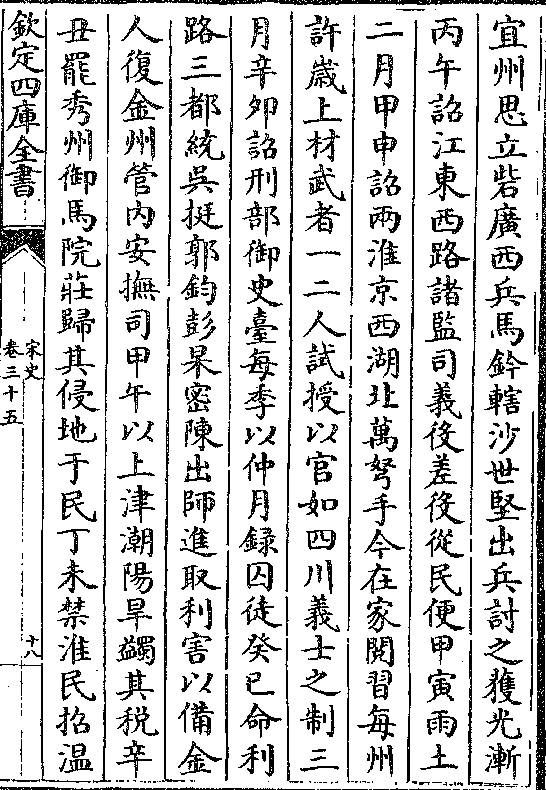 宜州思立砦廣西兵馬鈐轄沙世堅出兵討之獲光漸
丙午詔江東西路諸監司義役差役從民便甲寅雨土
二月甲申詔兩淮京西湖北萬弩手令在家閱習每州
許歲上材武者一二人試授以官如四川義士之制三
月辛卯詔刑部御史臺每季以仲月録囚徒癸巳命利
路三都統吳挺郭鈞彭杲密陳出師進取利害以備金
人復金州管內安撫司甲午以上津潮陽旱蠲其税辛
丑罷秀州御馬院莊歸其侵地于民丁未禁淮民招温
欽定四庫全書
宋史
卷三十五
十八